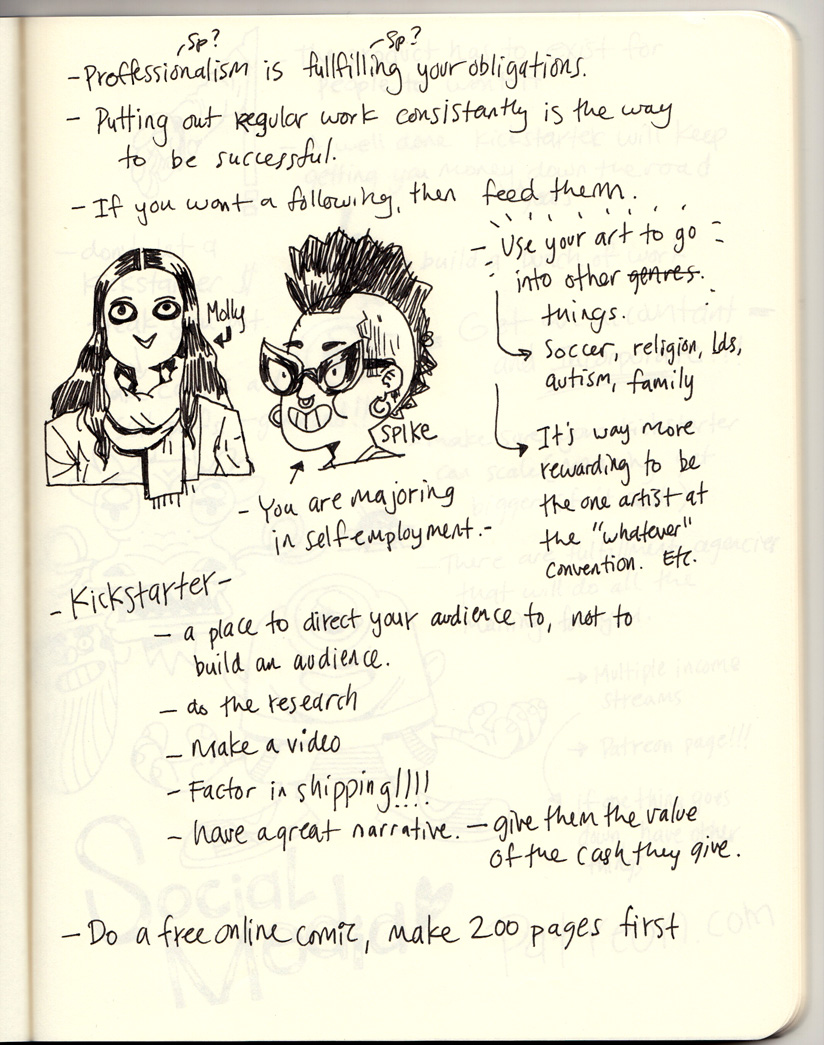 sp? sp?
- Proffessionalism is fullfilling your obligations.
- Putting out regular work consistantly is the way
to be successful.
- If you want a following, then feed them.
- Use your art to go
into other genres.
things.
Soccer, religion, Lds,
autism, family
It's way more
rewarding to be
the one artist at
the "whatever"
convention. Etc.
Molly
SPIKE
- You are majoring
in self employment. -
- Kickstarter -
- a place to direct your audience to, not to
build an audience.
- do the research
- Make a video
- Factor in shipping!!!!
- have a great narrative. - give them the value
of the cash they give.
- Do a free online comic, make 200 pages first
Social
Media
Patreon.com
- Multiple income
streams
Patreon page!!!